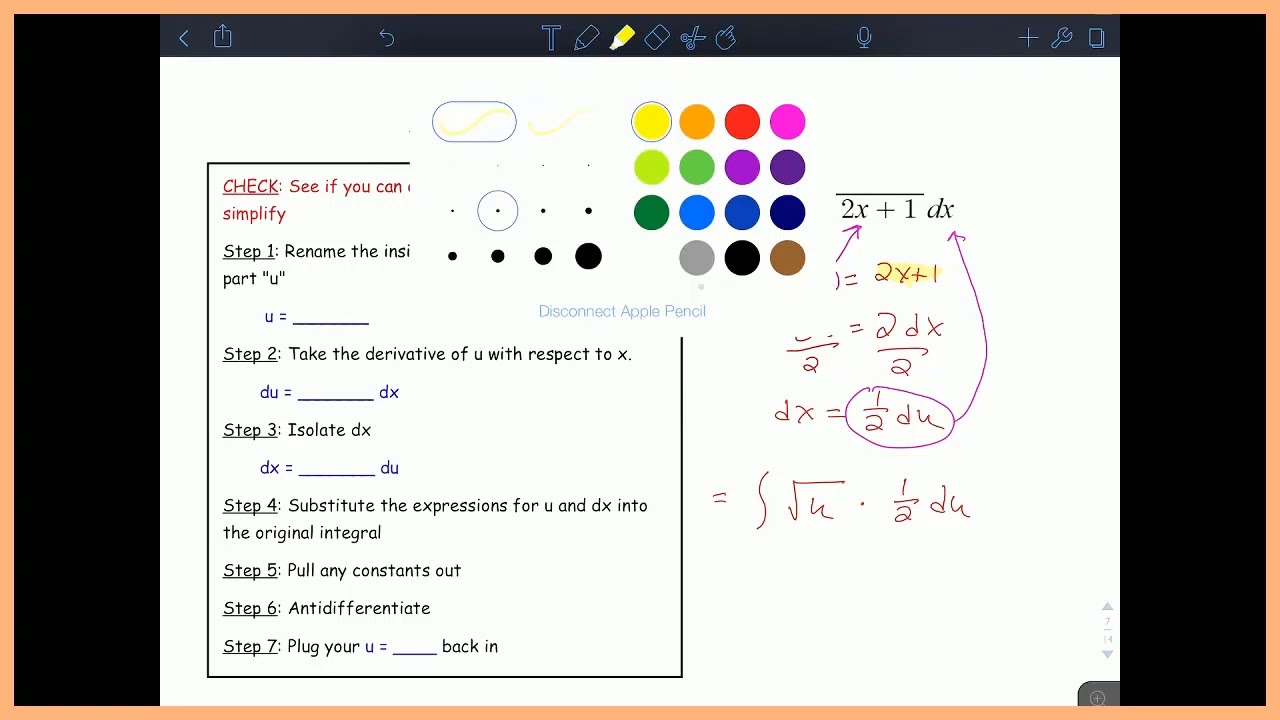 CHECK: See if you can
simplify
Step 1: Rename the insi
part "u"
u = ________
Step 2: Take the derivative of u with respect to x.
du = ________ dx
Step 3: Isolate dx
dx = ________ du
Step 4: Substitute the expressions for u and dx into
the original integral
Step 5: Pull any constants out
Step 6: Antidifferentiate
Step 7: Plug your u = ____ back in
Disconnect Apple Pencil
2x + 1 dx
= 2x+1
= 2 dx
2 2
dx = 1/2 du
= ∫ √u · 1/2 du
7
14